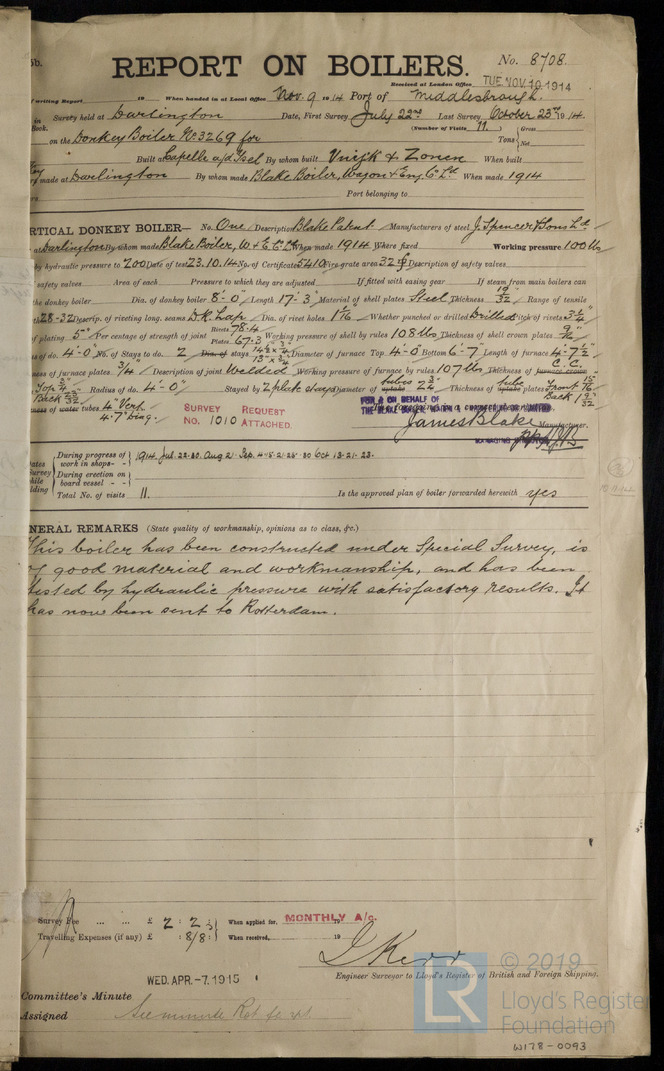 5b.
REPORT ON BOILERS.
No. 8708
Received at London Office TUE NOV. 10. 1914
f writing Report 19 When handed in at Local Office Nov. 9 1914 Port of Middlesbrough.
in Survey held at Darlington Date, First Survey July 22nd Last Survey October 23rd 1914.
Book. (Number of Visits 11. )
on the Donkey Boiler No. 3269 for Tons { Gross Net
Built at Capelle a/d Ysel By whom built Vuijk & Zonen When built
made at Darlington By whom made Blake Boiler, Wagon & Eng. Co. Ltd When made 1914
Port belonging to
RTICAL DONKEY BOILER— No. One Description Blake Patent Manufacturers of steel J. Spencer & Sons Ltd.
at Darlington By whom made Blake Boiler, W & E. Co. Ld When made 1914. Where fixed Working pressure 100 lbs
by hydraulic pressure to 200 Date of test 23.10.14 No. of Certificate 5410 Fire grate area 32 Description of safety valves
safety valves Area of each Pressure to which they are adjusted If fitted with easing gear If steam from main boilers can
the donkey boiler Dia. of donkey boiler 8'-0" Length 17'-3" Material of shell plates Steel Thickness 19/32 Range of tensile
28-32 Descrip. of riveting long. seams D.R. Lap Dia. of rivet holes 1 1/16" Whether punched or drilled Drilled Pitch of rivets 3 1/4"
of plating 5" Per centage of strength of joint Rivets 78.4 Plates 67.3 Working pressure of shell by rules 108 lbs Thickness of shell crown plates 9/16"
s of do. 4'-0" No. of Stays to do. 2 Dia. of stays 14 1/2" x 3/4 13" x 3/4 Diameter of furnace Top 4'-0" Bottom 6'-7" Length of furnace 4'-7 1/2"
ness of furnace plates 3/4" Description of joint Welded Working pressure of furnace by rules 107 lbs Thickness of furnace crown C.C.
Top 3/4 Back 23/32 Radius of do. 4'-0" Stayed by 2 plate stays Diameter of uptake tubes 2 3/4 2 1/2 Thickness of uptake tube plates Front 15/16 Back 19/32
ness of water tubes 4" Vert. 4'-7" diag.
SURVEY REQUEST
NO. 1010 ATTACHED.
FOR & ON BEHALF OF
James Blake Manufacturer.
MANAGING DIRECTOR
During progress of work in shops - - 1914. Jul. 22. 30. Aug 21. Sep. 4. 15. 21. 25. 30 Oct 13. 21. 23.
During erection on board vessel - -
Total No. of visits 11. Is the approved plan of boiler forwarded herewith yes
NERAL REMARKS (State quality of workmanship, opinions as to class, &c.)
This boiler has been constructed under Special Survey, is
of good material and workmanship, and has been
tested by hydraulic pressure with satisfactory results. It
has now been sent to Rotterdam.
Survey Fee ... ... £ 2 : 2 When applied for, MONTHLY A/c. 19
Travelling Expenses (if any) £ : 8/8 : When received, 19
J Kerr
Engineer Surveyor to Lloyd's Register of British and Foreign Shipping.
WED. APR. -7. 1915
Committee's Minute
Assigned See minute Rot
© 2019
LR
Lloyd's Register
Foundation
W178-0093